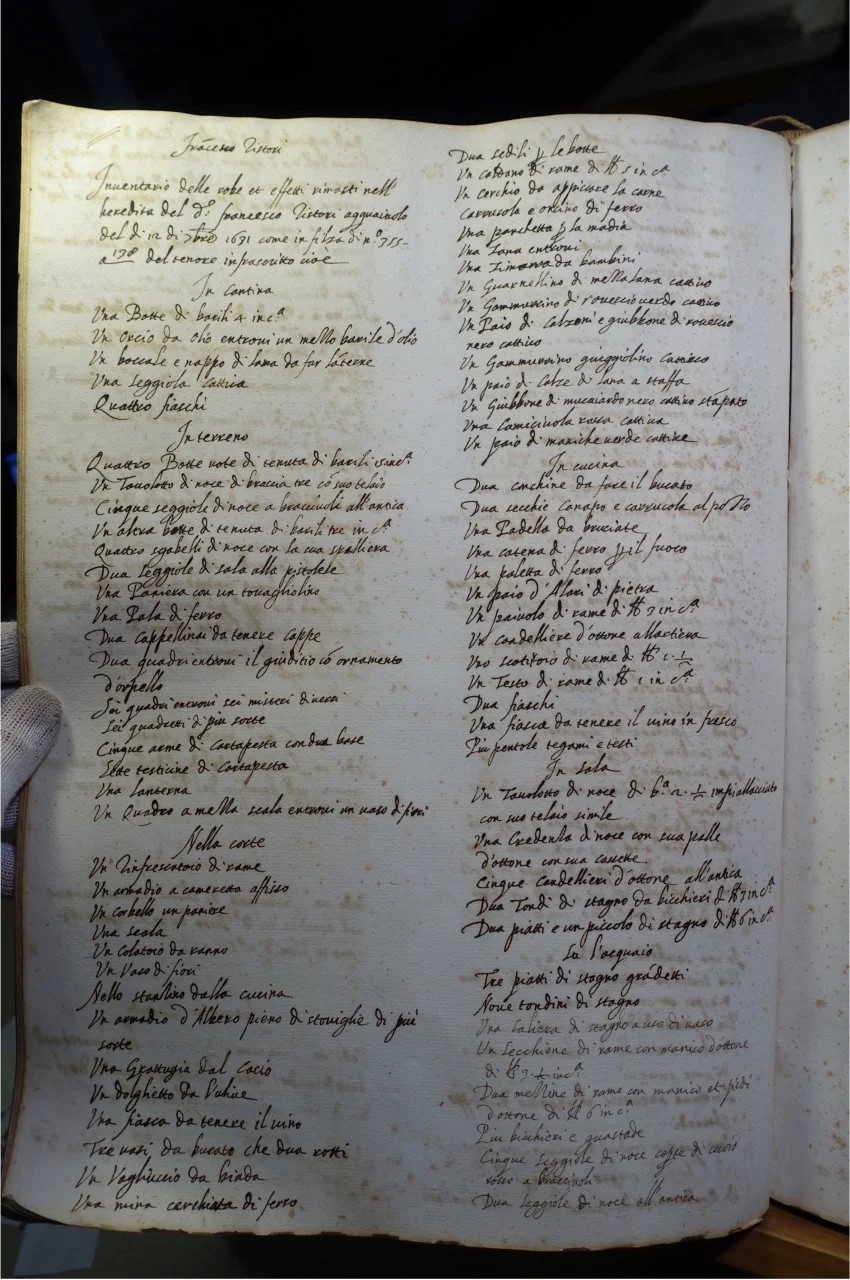 Francesco Vittori
Inventario delle robe et effetti rimasti nell'
heredità del d.º francesco Vittori
del dì 12 di 7bre 1691 come in filza di n.º 755
a 178 del tenore infrascritto cioè
In Cantina
Una Botte di barili 4 in c.ª
Un orcio da olio entrovi un mezzo barile d'olio
Un boccale e nappo di lama da far
Una Seggiola Cattiva
Quattro fiaschi
In terreno
Quattro Botte vote di tenuta di barili 15 in c.ª
Un Tavolotto di noce di braccia tre cō suo telaio
Cinque seggiole di noce a bracciuoli all'antica
Un altra botte di tenuta di barili tre in c.ª
Quattro sgabelli di noce con la sua spalliera
Dua Seggiole di sala alla pistolese
Una Paniera con un tovagliolino
Una Pala di ferro
Dua Cappellinai da tenere Cappe
Dua quadri entrovi il giuditio cō ornamento
d'orpello
Sei quadri entrovi sei misteri diversi
Sei quadretti di più sorte
Cinque arme di Cartapesta con dua base
Sette testicine di Cartapesta
Una lanterna
Un Quadro a mezza scala entrovi un vaso di fiori
Nella Corte
Un Rinfrescatoio di rame
Un armadio a camerata affisso
Un corbello un paniere
Una scala
Un Colatoio da ranno
Un Vaso di fiori
Nello stanzino dalla cucina
Un armadio d'Albero pieno di stoviglie di più
sorte
Una Grattugia dal Cacio
Un da l'ulive
Una fiasca da tenere il vino
Tre vasi da bucato che dua rotti
Un Vagliuccio da biada
Una mina cerchiata di ferro
Dua sedili p le botte
Un caldano di rame di ℔ 5 in c.ª
Un cerchio da appiccare la carne
Carrucola e oncino di ferro
Una panchetta p la madia
Una Zana entrovi
Una Zimarra da bambini
Un Guarnellino di mezzalana cattivo
Un Gammurrino di rovescio verde cattivo
Un Paio di Calzoni e giubbone di rovescio
nero cattivo
Un Gammurrino giuggiolino Cattivo
Un paio di Calze di lana a staffa
Un Giubbone di mucaiardo nero cattivo
Una Camiciuola rossa cattiva
Un paio di maniche verde cattive
In cucina
Dua conchine da fare il bucato
Dua secchie Canapo e carrucola al pozzo
Una Padella da bruciate
Una catena di ferro p il fuoco
Una paletta di ferro
Un paio d'Alari di pietra
Un paiuolo di rame di ℔ 3 in c.ª
Un candelliere d'ottone
Uno scotitoio di rame di ℔ 1 ½
Un Testo di rame di ℔ 1 in c.ª
Dua fiaschi
Una fiasca da tenere il vino in fresco
Più pentole tegami e testi
In Sala
Un Tavolotto di noce di b.ª 2 ½ impiallacciato
con suo telaio simile
Una Credenza di noce con sua palle
d'ottone con sua cassette
Cinque Candellieri d'ottone all'antica
Dua Tondi di stagno da bicchieri di ℔ 3 in c.ª
Dua piatti e un piccolo di stagno di ℔ 6 in c.ª
Su l'acquaio
Tre piatti di stagno grādetti
Nove tondini di stagno
Una Saliera di stagno a uso di vaso
Un Secchione di rame con manico d'ottone
di ℔ 9 ½ in c.ª
Dua mezzine di rame con manico et piedi
d'ottone di ℔ 6 in c.ª
Più bicchieri e guastade
Cinque Seggiole di noce coperte di cuoio
rosso a bracciuoli
Dua Seggiole di noce all'antica